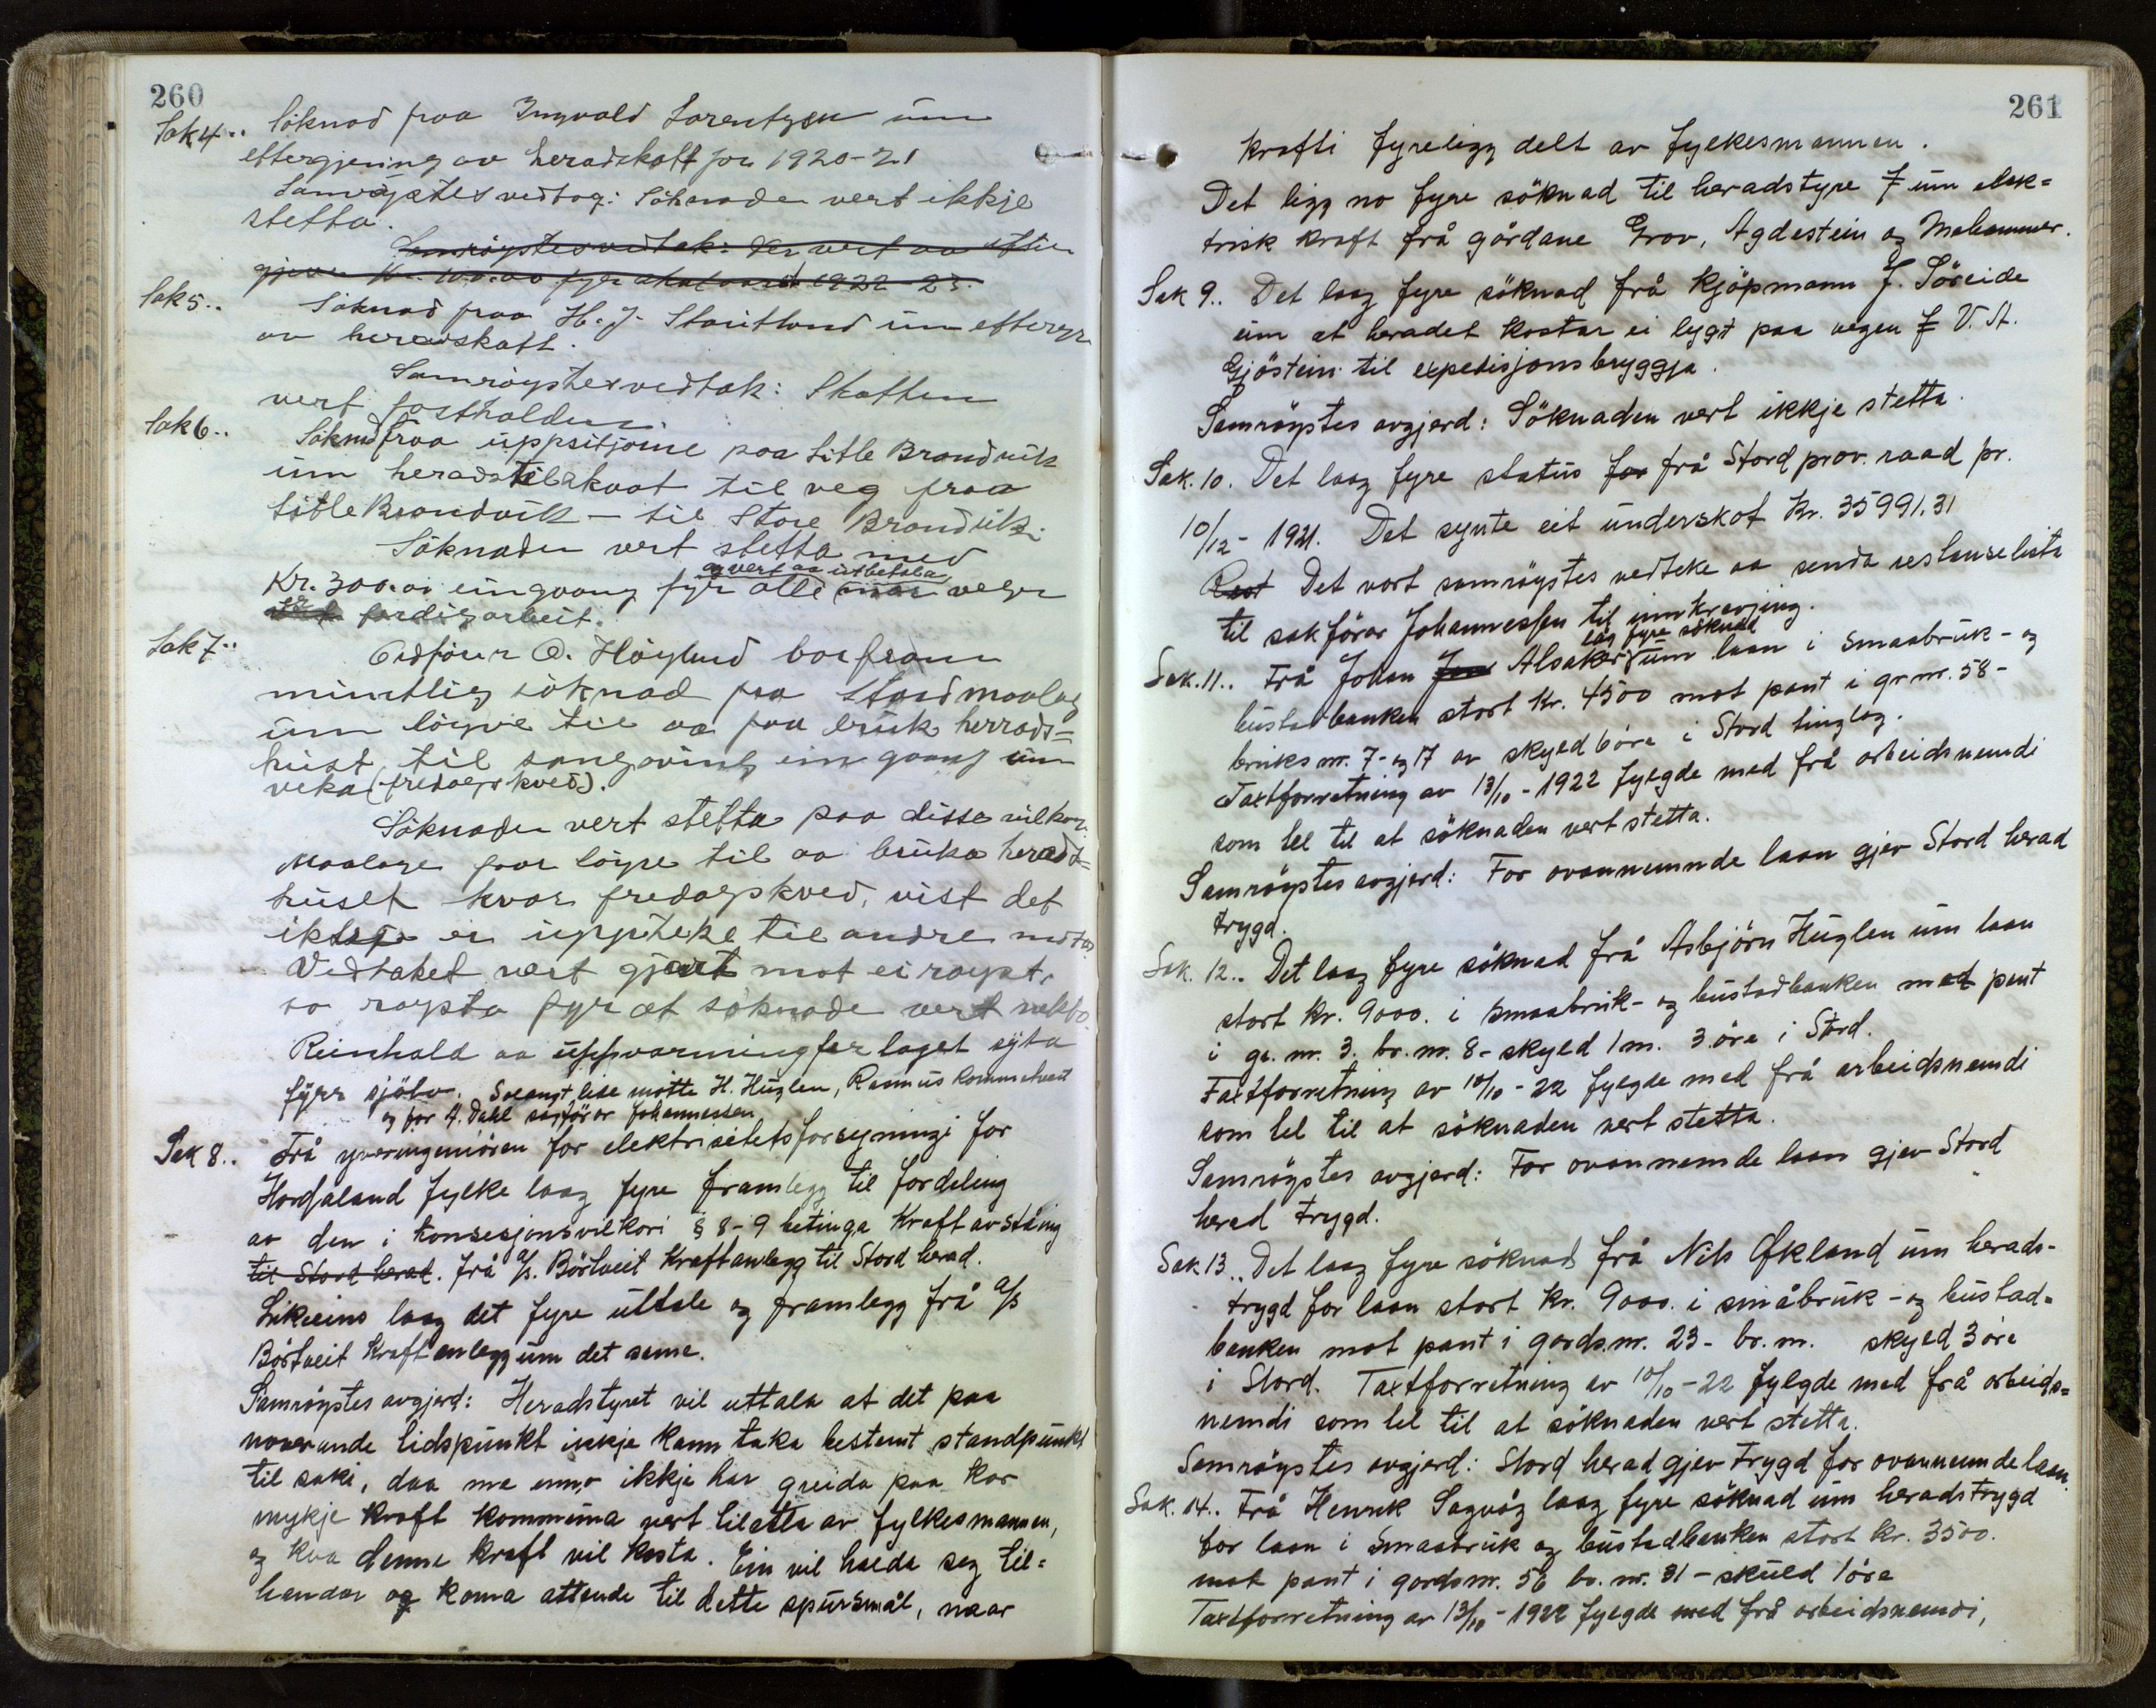 260
Sak 4.. Söknad fraa Ingvald Larentzen um
eftergjeving av heradskatt for 1920-21
Samröystes vedtag: Söknaden vert ikkje
stetta.
Samröystesvedtak: Der vert aa efter
gjeve Kr. 100.00 fyr skataaret 1922-23.
Sak 5.. Söknad fraa H. J. Stautland um eftergj.
av heradskatt.
Samröystesvedtak: Skatten
vert fastholden.
Sak 6.. Söknad fraa uppsitjome paa Litle Brandvik
um heradstilskoot til veg fraa
Litle Brandvik – til Store Brandvik.
Söknaden vert stetta med
og vert aa utbetala
Kr. 300.00 eingoong fyr alle naar vegen
er
vert ferdigarbeit.
Sak 7.. Ordförer O. Höylund bar fram
muntlig söknad fra Stord maallag
um löyve til aa faa bruk herrads=
hust til songöving ein goong um
veka (fredagskved).
Söknaden vert stetta paa disse vilkor.
Maalage faar löyve til aa bruka herads=
huset kvar fredagskved, vist det
ikkje er uppteke til andre
Vedtaket vart gjort mot ei royst,
so roysta fyr at söknade vert nekta.
Reinhald aa uppvarming fær laget syta
fyre sjölv. Soeangt lese mötte H. Huglen, Rasmus Rommetveit
og for A. Dahl sakförar Johannessen
Sak 8.. Frå yveringeniören for elektrisitetsforsyningi for
Hordaland fylke laag fyre framlegg til fordeling
av den i konsesjonsvilkori § 8-9 betinga Kraft avståing
til Stord herad. frå A/s. Börtveit Kraftanlegg til Stord herad.
Likeeins laag det fyre uttale og framlegg frå A/s
Börtveit Kraftanlegg um det same.
Samröystes avgjerd: Heradstyret vil uttala at det paa
noverande tidspunkt ikkje kann taka bestemt standpunkt
til saki, daa me enno ikkje har greida paa kor
mykje kraft kommuna vert tilatta av fylkesmannen,
og kva denne kraft vil kosta. Ein vil halda seg til=
handar og koma attende til dette spursmål, naar
261
krafti fyreligg delt av fylkesmannen.
Det ligg no fyre söknad til heradstyre f um elek=
trisk kraft frå gårdane Grov, Agdestein og Mehammer.
Sak 9.. Det laag fyre söknad frå kjöpmann J. Söreide
um at heradet kostar ei lygt paa vegen f V. A.
Gjöstein til expedisjonsbryggja.
Samröystes avgjerd: Söknaden vert ikkje stetta.
Sak. 10. Det laag fyre status for frå Stord prov. raad pr.
10/12 - 1921. Det synte eit underskot Kr. 35991.31
Rest Det vart samröystes vedteke aa senda restanselista
til sakförar Johannessen til innkrevjing.
låg fyre söknad
Sak. 11.. Frå Johan Alsaker um laan i Smaabruk- og
bustadbanken stort kr. 4500 mot pant i gr. nr. 58-
bruks nr. 7- og 17 av skyld öre i Stord tinglag.
Taxtforretning av 13/10 - 1922 fylgde med frå arbeidsnemdi
som lel til at söknaden vert stetta.
Samröystes avgjerd: For ovannemnde laan gjev Stord herad
trygd.
Sak. 12.. Det laag fyre söknad frå Asbjörn Huglen um laan
stort kr. 9000. i Smaabruk- og bustadbanken mot pant
i gr. nr. 3. br. nr. 8- skyld 1 m. 3 öre i Stord.
Taxtforretning av 10/10 - 22 fylgde med frå arbeidsnemdi
som lel til at söknaden vert stetta.
Samröystes avgjerd: For ovannemde laan gjev Stord
herad trygd.
Sak 13.. Det laag fyre söknad frå Nils Økland um herads-
trygd for laan stort kr. 9000. i småbruk- og bustad=
banken mot pant i gards nr. 23- br. nr. skyld 3 öre
i Stord. Taxtforretning av 10/10 - 22 fylgde med frå arbeids=
nemdi som lel til at söknaden vert stetta.
Samröystes avgjerd: Stord herad gjev trygd for ovannemde laan.
Sak. 14.. Frå Henrik Sagvåg laag fyre söknad um heradstrygd
for laan i Smaabruk og bustadbanken stort kr. 3500.
mot pant i gards nr. 56 br. nr. 31 – skuld 1 öre
Taxtforretning av 13/10 - 1922 fylgde med frå arbeidsnemdi,